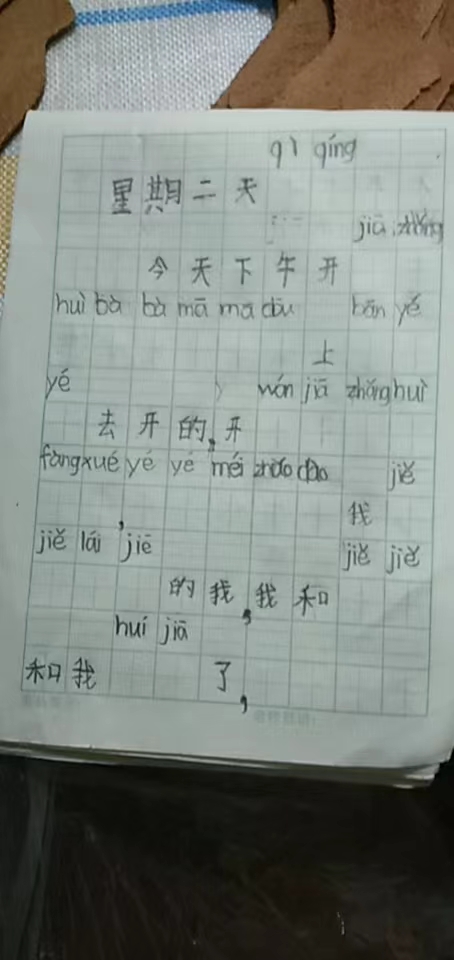 qì qíng
星期二天
jiā zhǎng
今天下午开
huì bà bà mā ma dōu bān yé
上
yé wán jiā zhǎng huì
去开的,开
fàng xué yé yé méi zhǎo dào jiě
, 我
jiě lái jiē jiě jiě
的我,我和
huí jiā
和我 了,